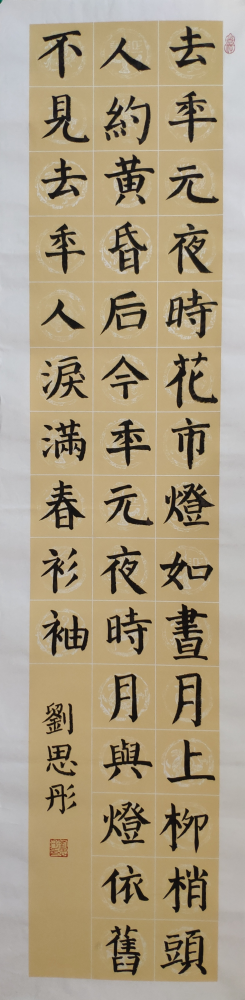 去年元夜時花市燈如晝月上柳梢頭
人約黄昏后今年元夜時月與燈依舊
不見去年人淚滿春衫袖
劉思彤